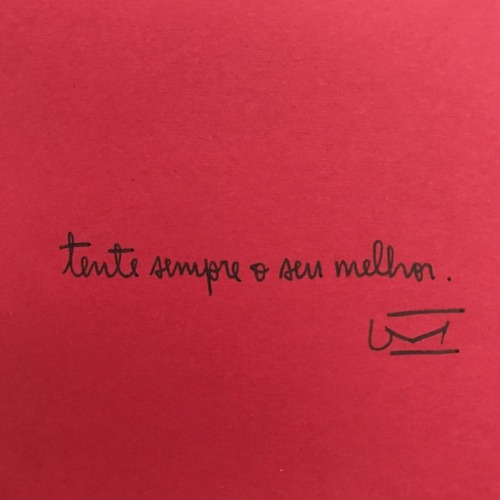 tente sempre o seu melhor.